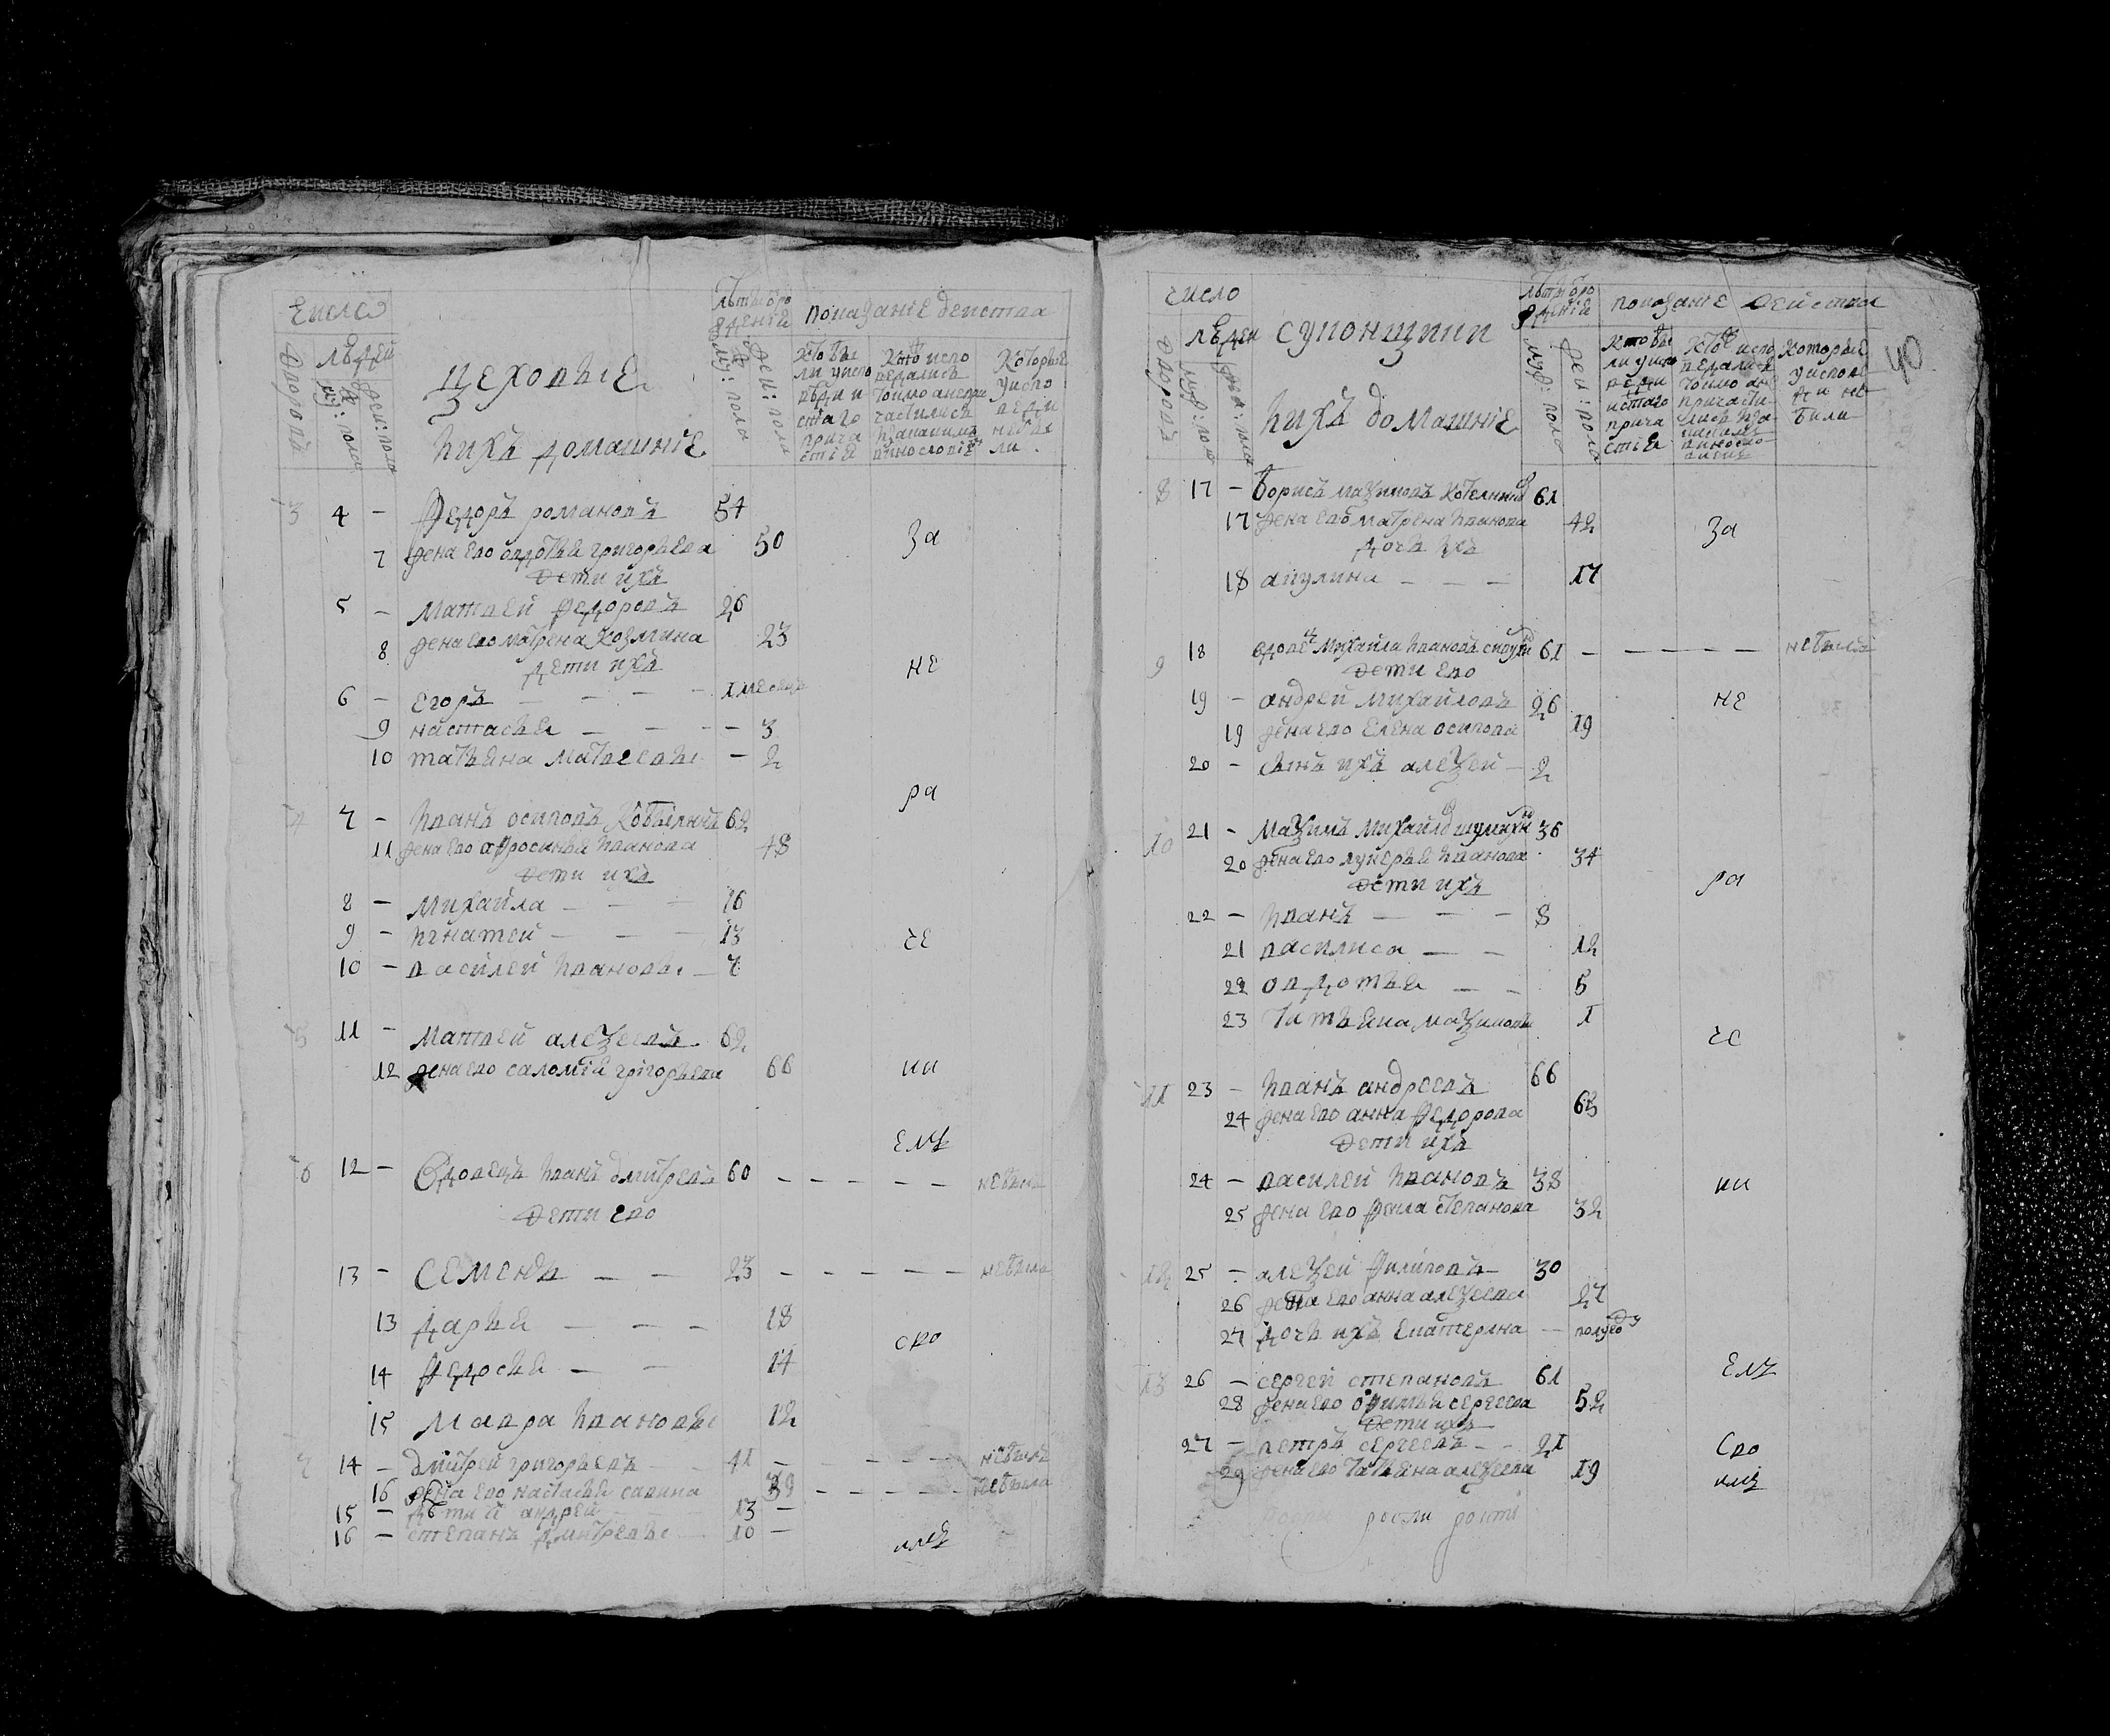 число
людей
дворовъ
муж: пола
жен: пола
цеховые
Ихъ домашние
лѣтъ от ро
ждения
муж: пола
жен: пола
показание действа
кто бы
ли у испо
вѣди и
стаго
прича
стия
кто испо
ведались
токмо а не при
частились
и за каким
винословие
которые
у испо
веди
не бы
ли
3 4 - Федоръ романовъ 54
7 жена ево овдотья григорьева 50 за
дети ихъ
5 - Матвей Федоровъ 26
8 жена ево матрена козмина 23
дети ихъ не
6 - Егоръ - - - 1 месецъ
9 настасья - - - - 3
10 татьяна матвеевы - 2
ра
4 7 - Иванъ осиповъ 62
11 жена ево афросинья Иванова 48
дети ихъ
8 - Михайла - - - 16
9 - Игнатей - - - 13 че
10 - василей Ивановы - 7
5 11 - Матвей алеѯеевъ 62
12 жена ево саломия григорьева 66 ни
емъ
6 12 - Вдовецъ Иванъ дмитревъ 60 - - - - - небылъ
дети ево
13 - Семенъ - - 23 - - - - - небылъ
13 дарья - - - 18
сво
14 Федосья - - 14
15 Мавра Ивановы 12
7 14 - дмитрей григорьевъ 41 - - - - - небылъ
16 жена ево настасья савина 39 - - - - - небыла
15 - дѣти и андрей 13 -
16 - степанъ дмитревы 10 -
имъ
число
людей
дворовъ
муж: пола
жен: пола
супонщики
Ихъ домашние
лѣтъ от ро
ждения
муж: пола
жен: пола
показание действа
40
кто бы
ли у испо
веди
и стаго
прича
стия
кто испо
ведался
токмо а не
причасти
лись и за
каким
винослов
которые
у испове
ди не
были
8 17 - борисъ маѯимовъ 61
17 жена ево матрена Иванова 42 за
дочь ихъ
18 акулина - - - 17
9 18 вдовецъ Михайла Ивановъ 61 - - - - - небылъ
дети ево
19 - андрей михайловъ 26 не
19 жена ево Елена осипова 19
20 - сынъ ихъ алеѯей - 2
10 21 - маѯимъ михайловъ 36
20 жена ево лукерья Иванова 34
дети ихъ ра
22 - Иванъ - - - 8
21 василиса - - 12
22 овдотья - - 5
23 татьяна маѯимовы 1
че
11 23 - Иванъ андреевъ 66
24 жена ево анна Федорова 63
дети ихъ
24 - василей Ивановъ 38 ни
25 жена ево Фекла степанова 32
12 25 - алеѯей Филиповъ 30
26 жена ево анна алеѯеева 27
27 дочь ихъ Екатерина - полугоду
емъ
13 26 - сергей степановъ 61
28 жена ево офимья сергеева 52
дети ихъ
27 - петръ сергеевъ - - 21 сво
29 жена ево татьяна алеѯеева 19 имъ